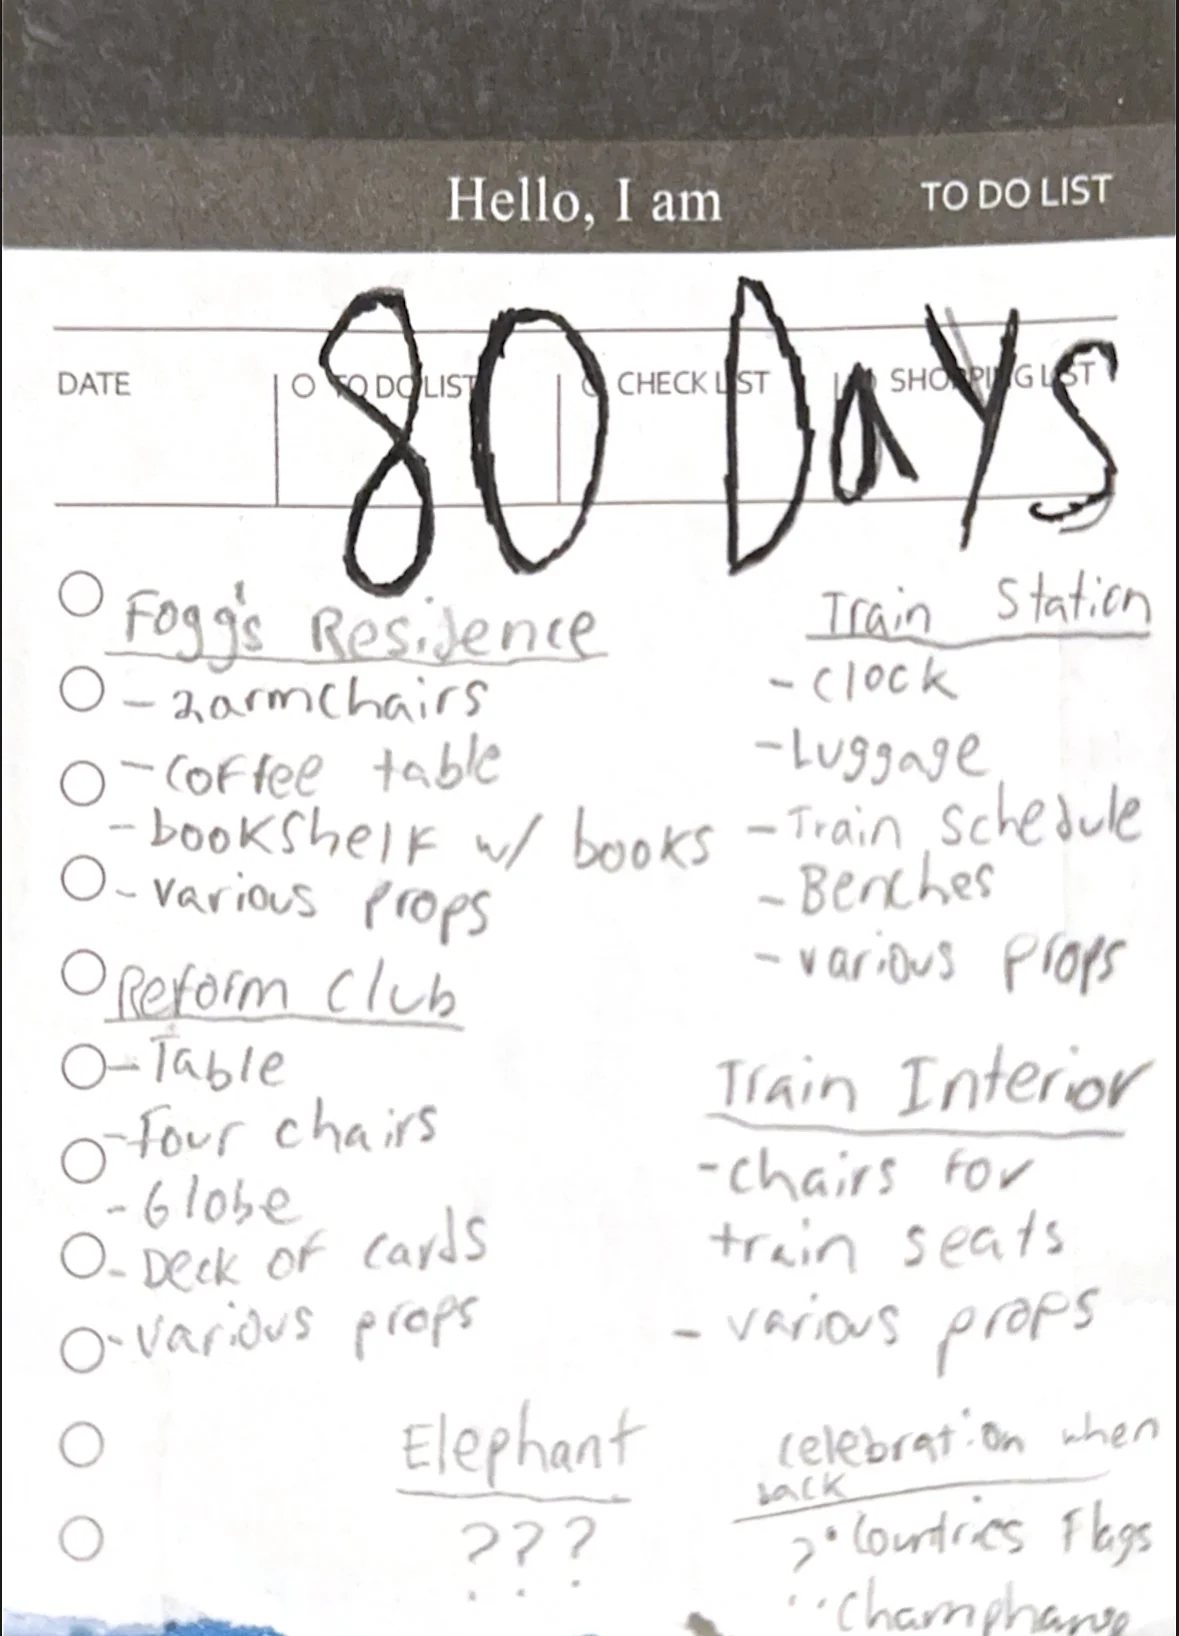 Hello, I am
TO DO LIST
80 Days
DATE
TO DO LIST
CHECK LIST
SHOPPING LIST
Fogg's Residence
- 2 armchairs
- coffee table
- bookshelf w/ books
- various props
Reform Club
- Table
- Four chairs
- Globe
- Deck of cards
- various props
Train Station
- Clock
- Luggage
- Train Schedule
- Benches
- various props
Train Interior
- chairs for
train seats
- various props
Elephant
???
celebration when
back
? • Countries Flags